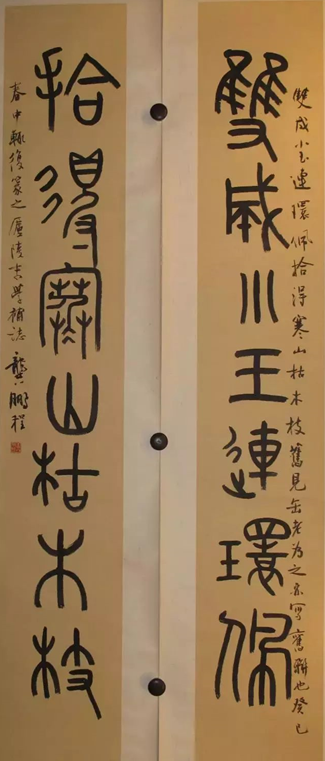 雙成小玉連環佩
雙成小玉連環佩拾得寒山枯木枝舊見缶老為之亦寫舊聯也癸巳
拾得寒山枯木枝
春中輒復篆之廬陵末學補誌
龔鵬程